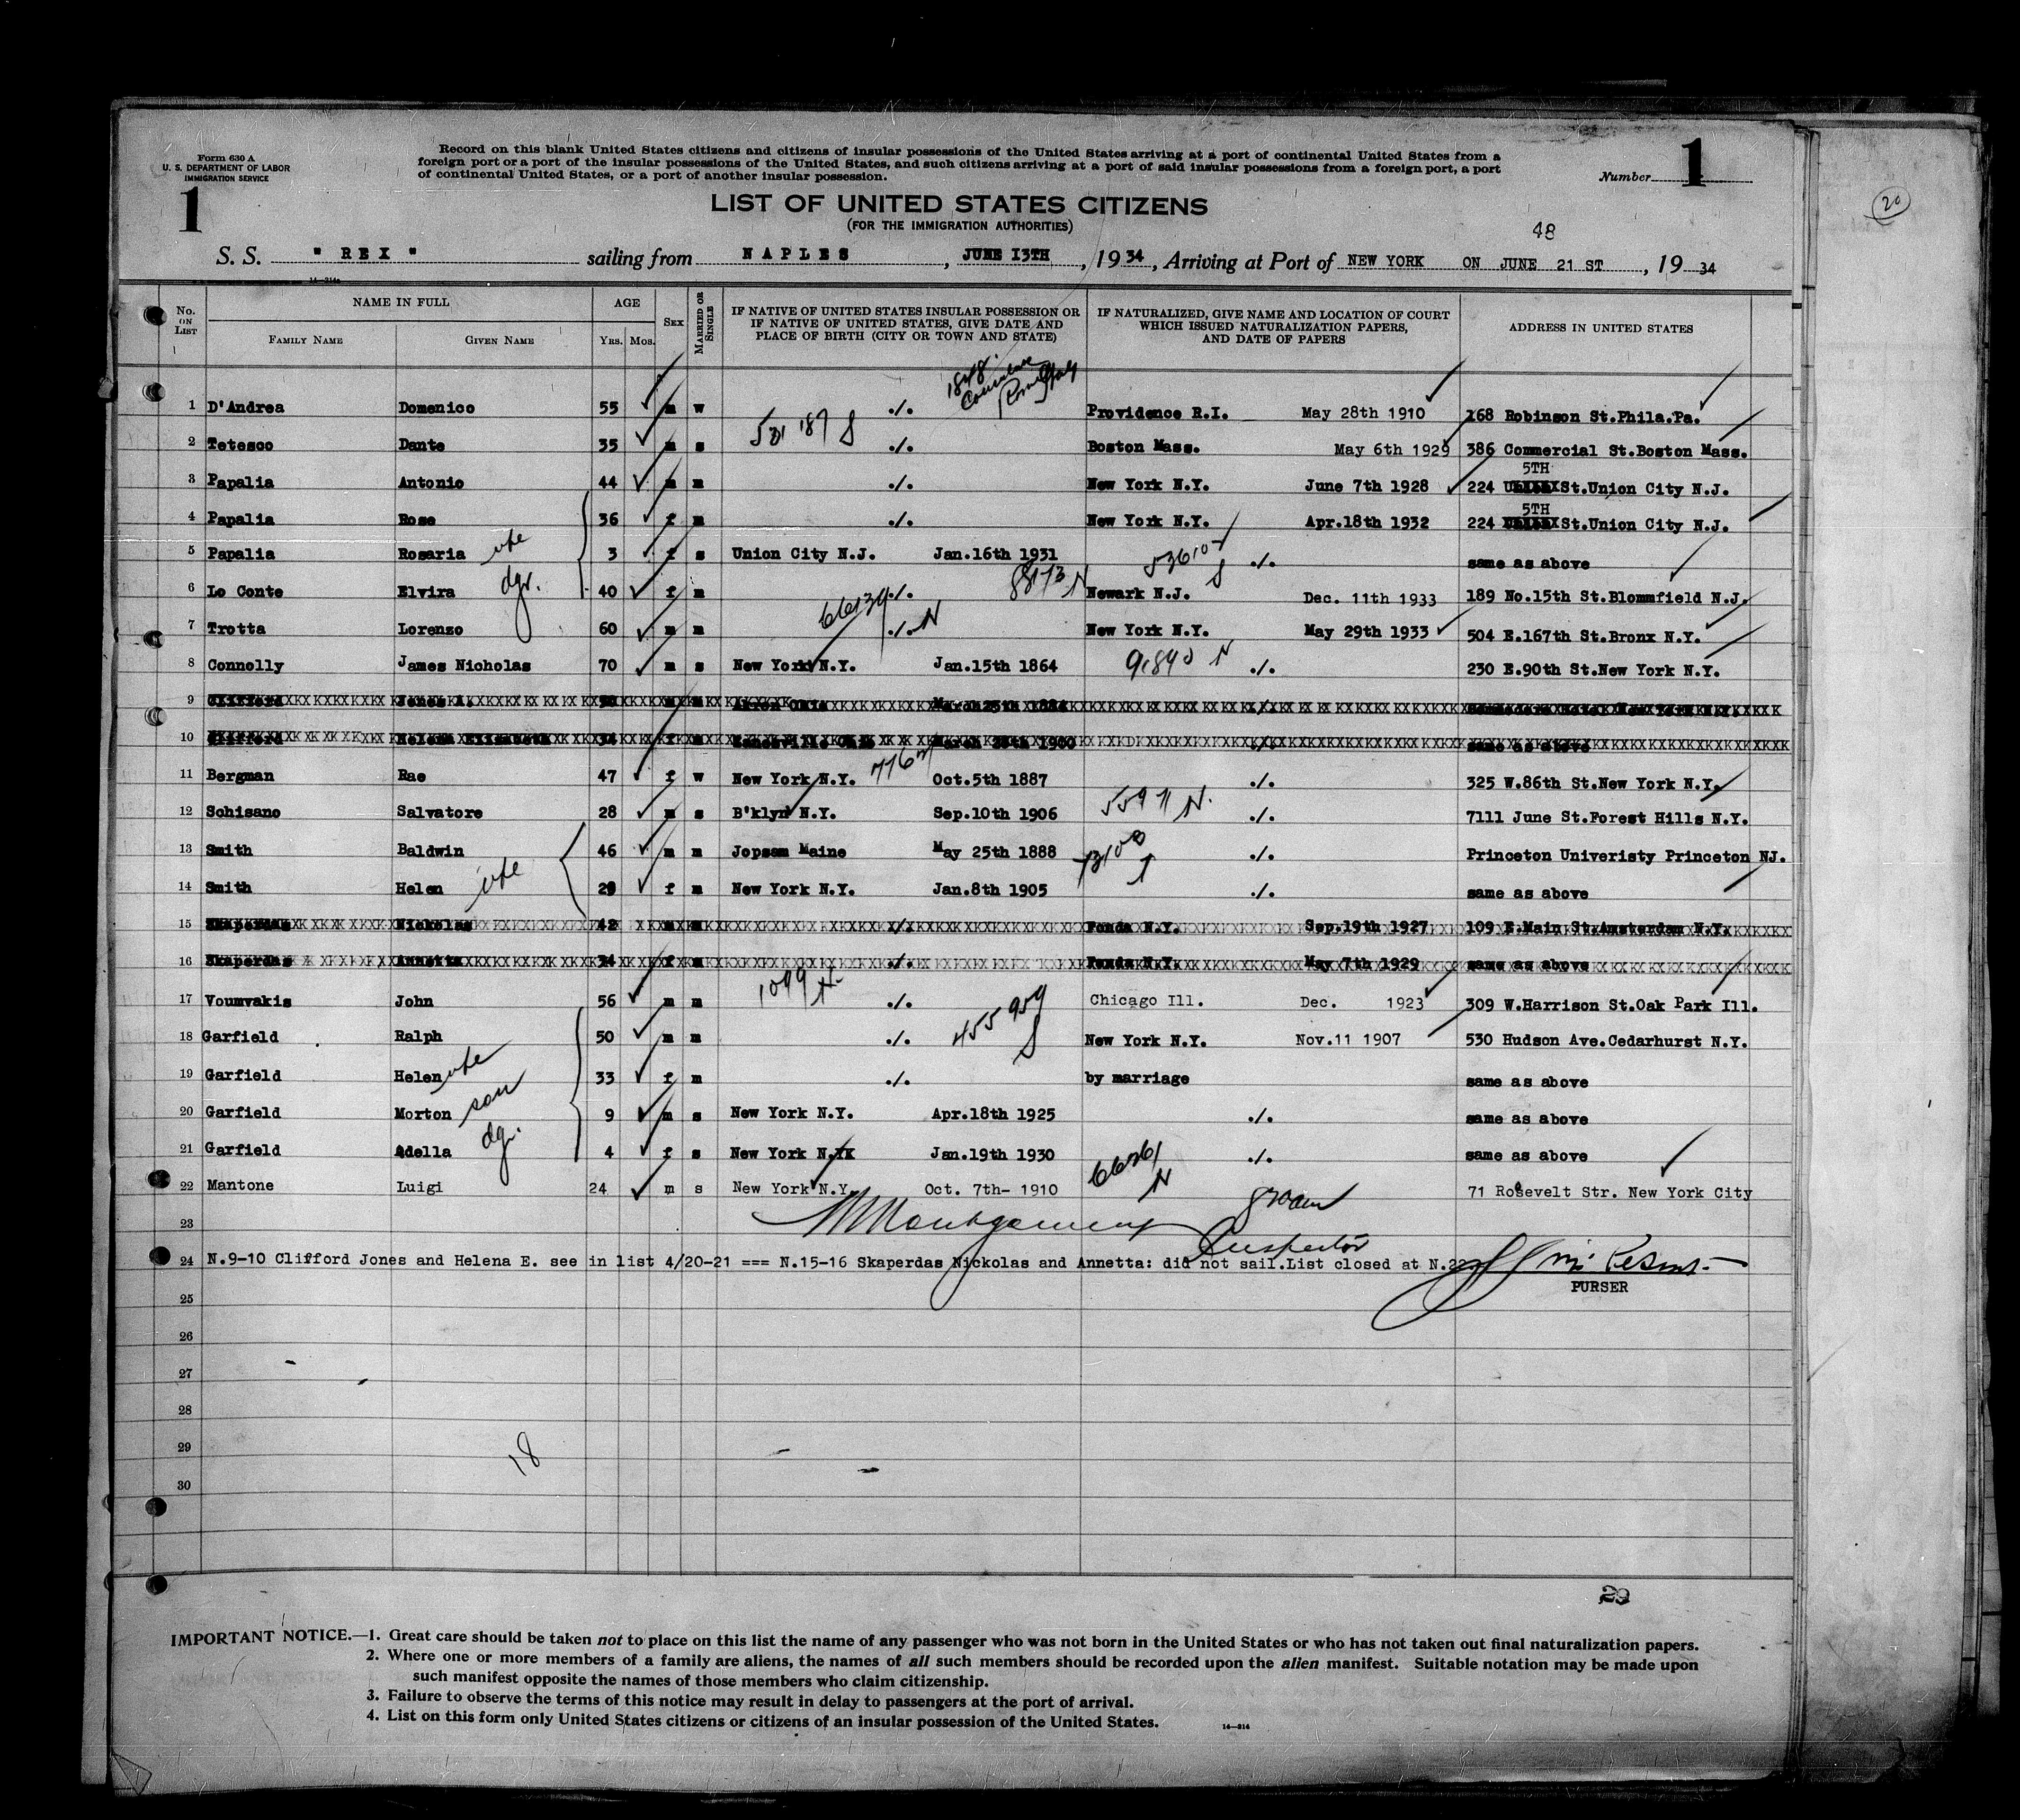 Form 630 A
U. S. DEPARTMENT OF LABOR
IMMIGRATION SERVICE
1
Record on this blank United States citizens and citizens of insular possessions of the United States arriving at a port of continental United States from a
foreign port or a port of the insular possessions of the United States, and such citizens arriving at a port of said insular possessions from a foreign port, a port
of continental United States, or a port of another insular possession.
Number 1
20
LIST OF UNITED STATES CITIZENS
(FOR THE IMMIGRATION AUTHORITIES)
48
S. S. " REX " sailing from NAPLES, JUNE I3TH, 1934, Arriving at Port of NEW YORK ON JUNE 21 ST, 19 34
14-214a
No. ON LIST NAME IN FULL AGE SEX MARRIED OR SINGLE IF NATIVE OF UNITED STATES INSULAR POSSESSION OR IF NATIVE OF UNITED STATES, GIVE DATE AND PLACE OF BIRTH (CITY OR TOWN AND STATE) IF NATURALIZED, GIVE NAME AND LOCATION OF COURT WHICH ISSUED NATURALIZATION PAPERS, AND DATE OF PAPERS ADDRESS IN UNITED STATES
FAMILY NAME GIVEN NAME YRS. MOS.
1 D'Andrea Domenico 55 m w ./. Providence R.I. May 28th 1910 168 Robinson St.Phila.Pa.
2 Tetesco Dante 35 m s ./. Boston Mass. May 6th 1929 386 Commercial St.Boston Mass.
5TH
3 Papalia Antonio 44 m m ./. New York N.Y. June 7th 1928 224 St.Union City N.J.
5TH
4 Papalia Rose 36 f m ./. New York N.Y. Apr.18th 1932 224 St.Union City N.J.
5 Papalia Rosaria 3 f s Union City N.J. Jan.16th 1931 ./. same as above
6 Lo Conte Elvira dgr. 40 f m ./. 88173 N Newark N.J. Dec. 11th 1933 189 No.15th St.Blommfield N.J.
7 Trotta Lorenzo 60 m m ./. N New York N.Y. May 29th 1933 504 E.167th St.Bronx N.Y.
8 Connolly James Nicholas 70 m s New York N.Y. Jan.15th 1864 N ./. 230 E.90th St.New York N.Y.
9 Clifford Jones A. 50 m m Akron Ohio March25th 1884
10 Clifford Helena Elizabeth 34 f m Zanesville Ohio 1900 same as above
11 Bergman Rae 47 f w New York N.Y. Oct.5th 1887 ./. 325 W.86th St.New York N.Y.
12 Schisano Salvatore 28 m s B'klyn N.Y. Sep.10th 1906 5597 N. ./. 7111 June St.Forest Hills N.Y.
13 Smith Baldwin 46 m m Jopsam Maine May 25th 1888 ./. Princeton Univeristy Princeton NJ.
14 Smith Helen 29 f m New York N.Y. Jan.8th 1905 ./. same as above
15 Skaperdas Nickolas 42 m m ./. Fonda N.Y. Sep.19th 1927 109 E.Main St.Amsterdam N.Y.
16 Skaperdas Annetta 34 f m ./. Fonda N.Y. May 7th 1929 same as above
17 Voumvakis John 56 m m 1099 N. ./. Chicago Ill. Dec. 1923 309 W.Harrison St.Oak Park Ill.
18 Garfield Ralph 50 m m ./. 455959 New York N.Y. Nov.11 1907 530 Hudson Ave.Cedarhurst N.Y.
19 Garfield Helen 33 f m ./. by marriage same as above
20 Garfield Morton son 9 m s New York N.Y. Apr.18th 1925 ./. same as above
21 Garfield Adella dgr. 4 f s New York N.Y. Jan.19th 1930 ./. same as above
22 Mantone Luigi 24 m s New York N.Y. Oct. 7th- 1910 N 71 Rosevelt Str. New York City
23 Montgomery Inspector
24 N.9-10 Clifford Jones and Helena E. see in list 4/20-21 === N.15-16 Skaperdas Nickolas and Annetta: did not sail.List closed at N.22
PURSER
25
26
27
28
29
18
30
29
IMPORTANT NOTICE.—1. Great care should be taken not to place on this list the name of any passenger who was not born in the United States or who has not taken out final naturalization papers.
2. Where one or more members of a family are aliens, the names of all such members should be recorded upon the alien manifest. Suitable notation may be made upon
such manifest opposite the names of those members who claim citizenship.
3. Failure to observe the terms of this notice may result in delay to passengers at the port of arrival.
4. List on this form only United States citizens or citizens of an insular possession of the United States.
14-214